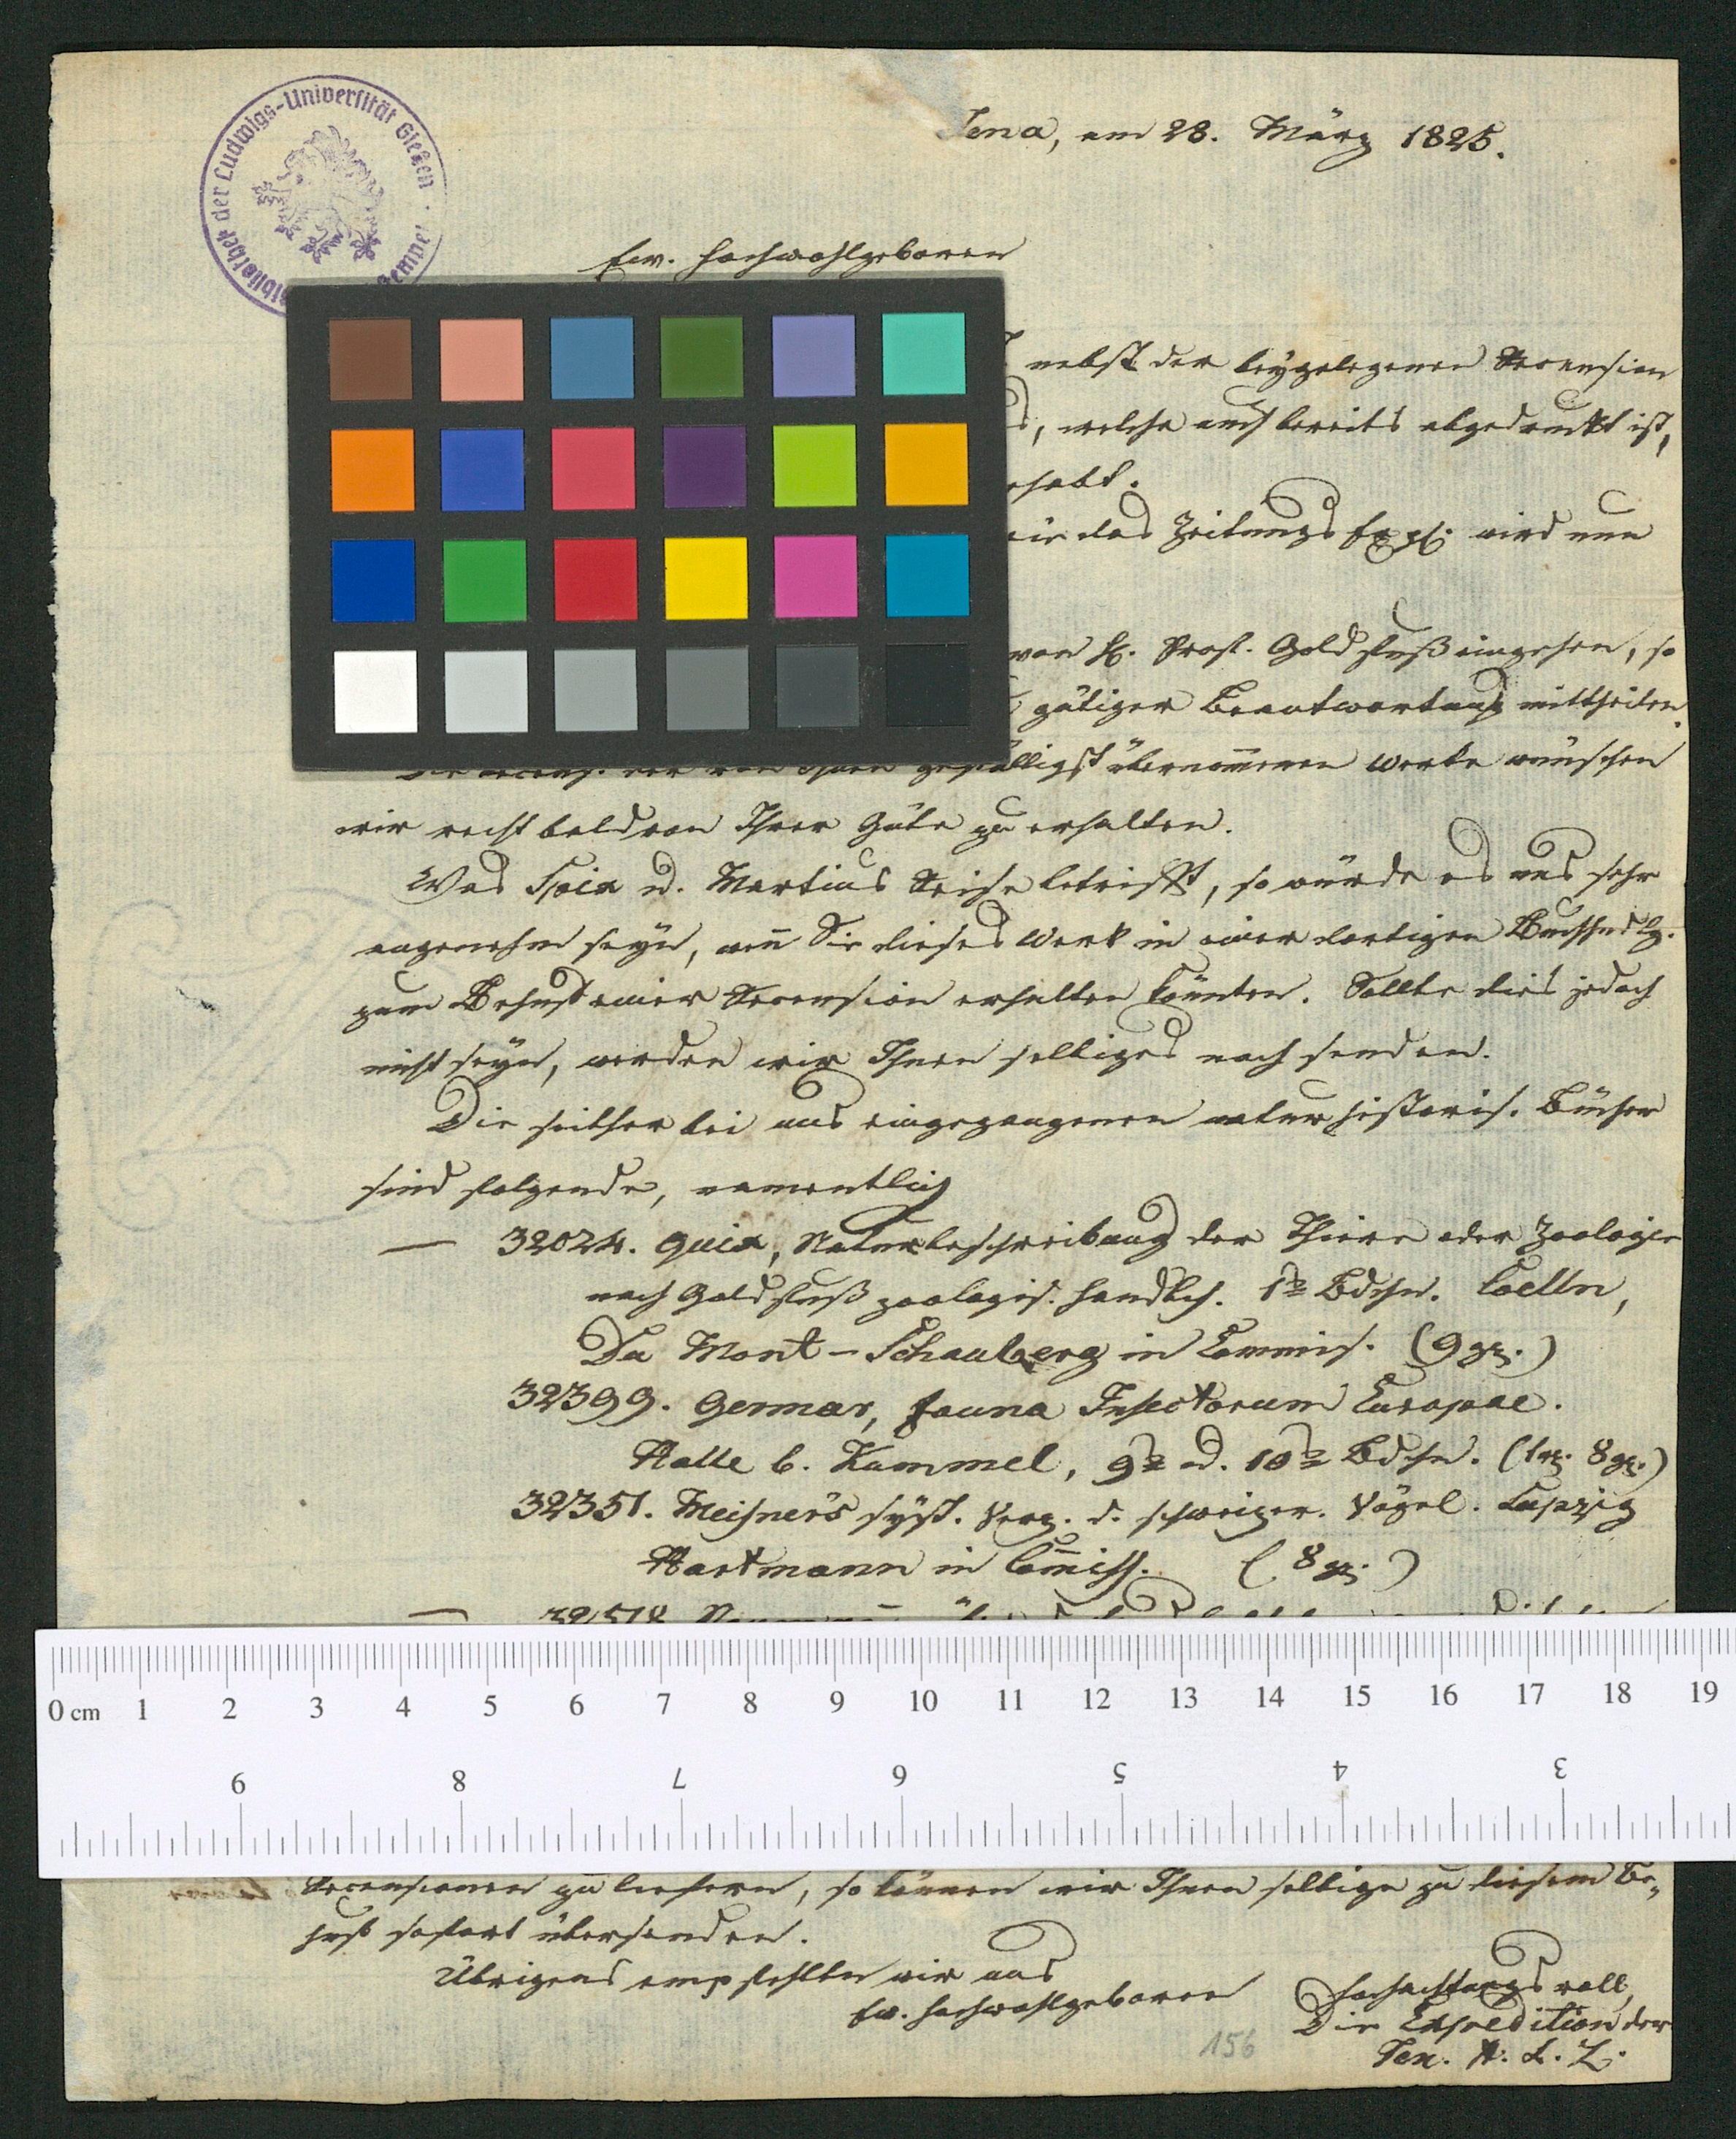 Bibliothek der Ludwigs-Universität Gießen
Jena, am 28. März 1825.
Ew. Hochwohlgeboren
nebst der beygelegenen Recension
, welche auch bereits abgedruckt ist,
gehabt.
das Zeitungs Expl. wird nun
von H. Prof. Goldfuß eingehen, so
gütiger Beantwortung mittheilen.
gefälligst übernom̄enen Werke wünschen
wir recht bald von Ihrer Güte zu erhalten.
Was Spix u. Martius Reise betrifft, so würde es uns sehr
angenehm seyn, wen̄ Sie dieses Werk in einer dortigen Buchhndlg.
zum Behuf einer Recension erhalten könnten. Sollte dies jedoch
nicht seyn, werden wir Ihnen selbiges nach senden.
Die seither bei uns eingegangenen naturhistoris. Bücher
sind folgende, namentlich
— 32024. Quix, Naturbeschreibung der Thiere oder Zoologie
nach Goldfuß zoologis. Handbch. 1s Bdchn. Coelln,
Du Mont-Schauberg in Commis. (9 gr.)
32399. Germar, fauna Insectorum Europae.
Halle b. Kümmel, 9s u. 10s Bdchn. (1 rt. 8 gr.)
32351. Meisner's syst. Verz. d. schweizer. Vögel. Leipzig
Hartmann in Com̄iss. (8 gr.)
— 32518.
0 cm 1 2 3 4 5 6 7 8 9 10 11 12 13 14 15 16 17 18 19
9 8 7 6 5 4 3
Recensionen zu liefern, so können wir Ihnen selbige zu diesem Be-
huf sofort übersenden.
Übrigens empfehlen wir uns
Ew. Hochwohlgeboren
Hochachtungsvoll
Die Expedition der
Jen. A. L. Z.
156